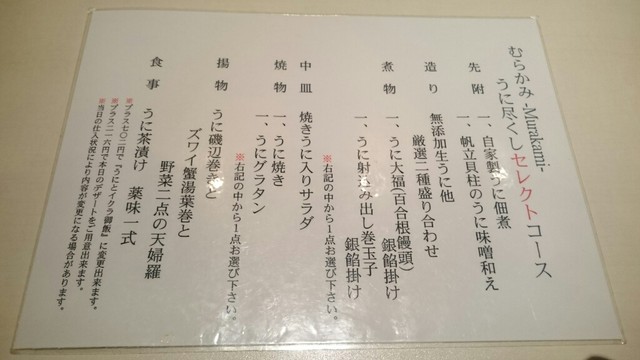 むらかみ-Murakami-
うに尽くしセレクトコース
先附 一、自家製うに佃煮
一、帆立貝柱のうに味噌和え
造り 無添加生うに他
厳選二種盛り合わせ
煮物 一、うに大福(百合根饅頭)
銀餡掛け
一、うに射込み出し巻玉子
銀餡掛け
※右記の中から1点お選び下さい。
中皿 焼きうに入りサラダ
焼物 一、うに焼き
一、うにグラタン
※右記の中から1点お選び下さい。
揚物 うに磯辺巻きと
ズワイ蟹湯葉巻と
野菜二点の天婦羅
食事 うに茶漬け 薬味一式
※プラス七〇二円で『うにとイクラ御飯』に変更出来ます。
※プラス二一六円で本日のデザートをご用意出来ます。
※当日の仕入状況により内容が変更になる場合があります。